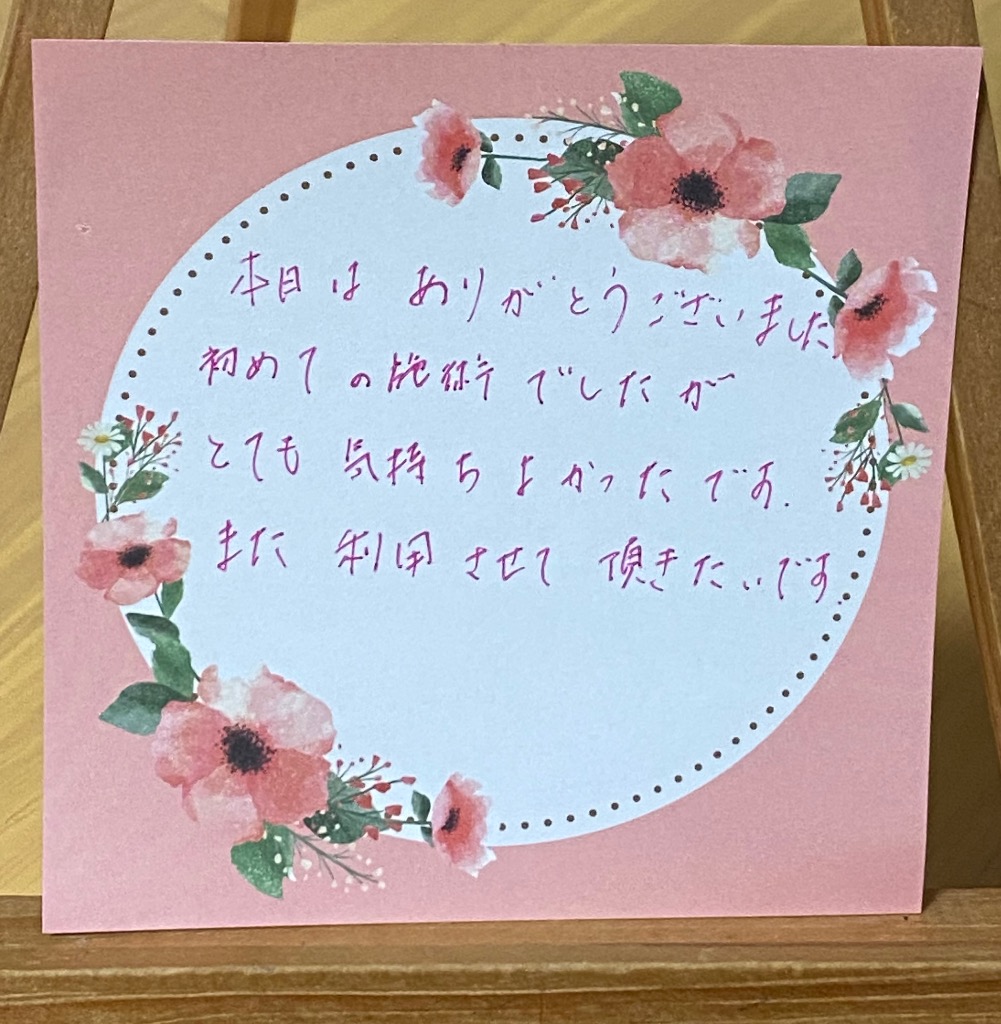 本日は ありがとうございました
初めての施術でしたが
とても気持ちよかったです.
また 利用させて 頂きたいです